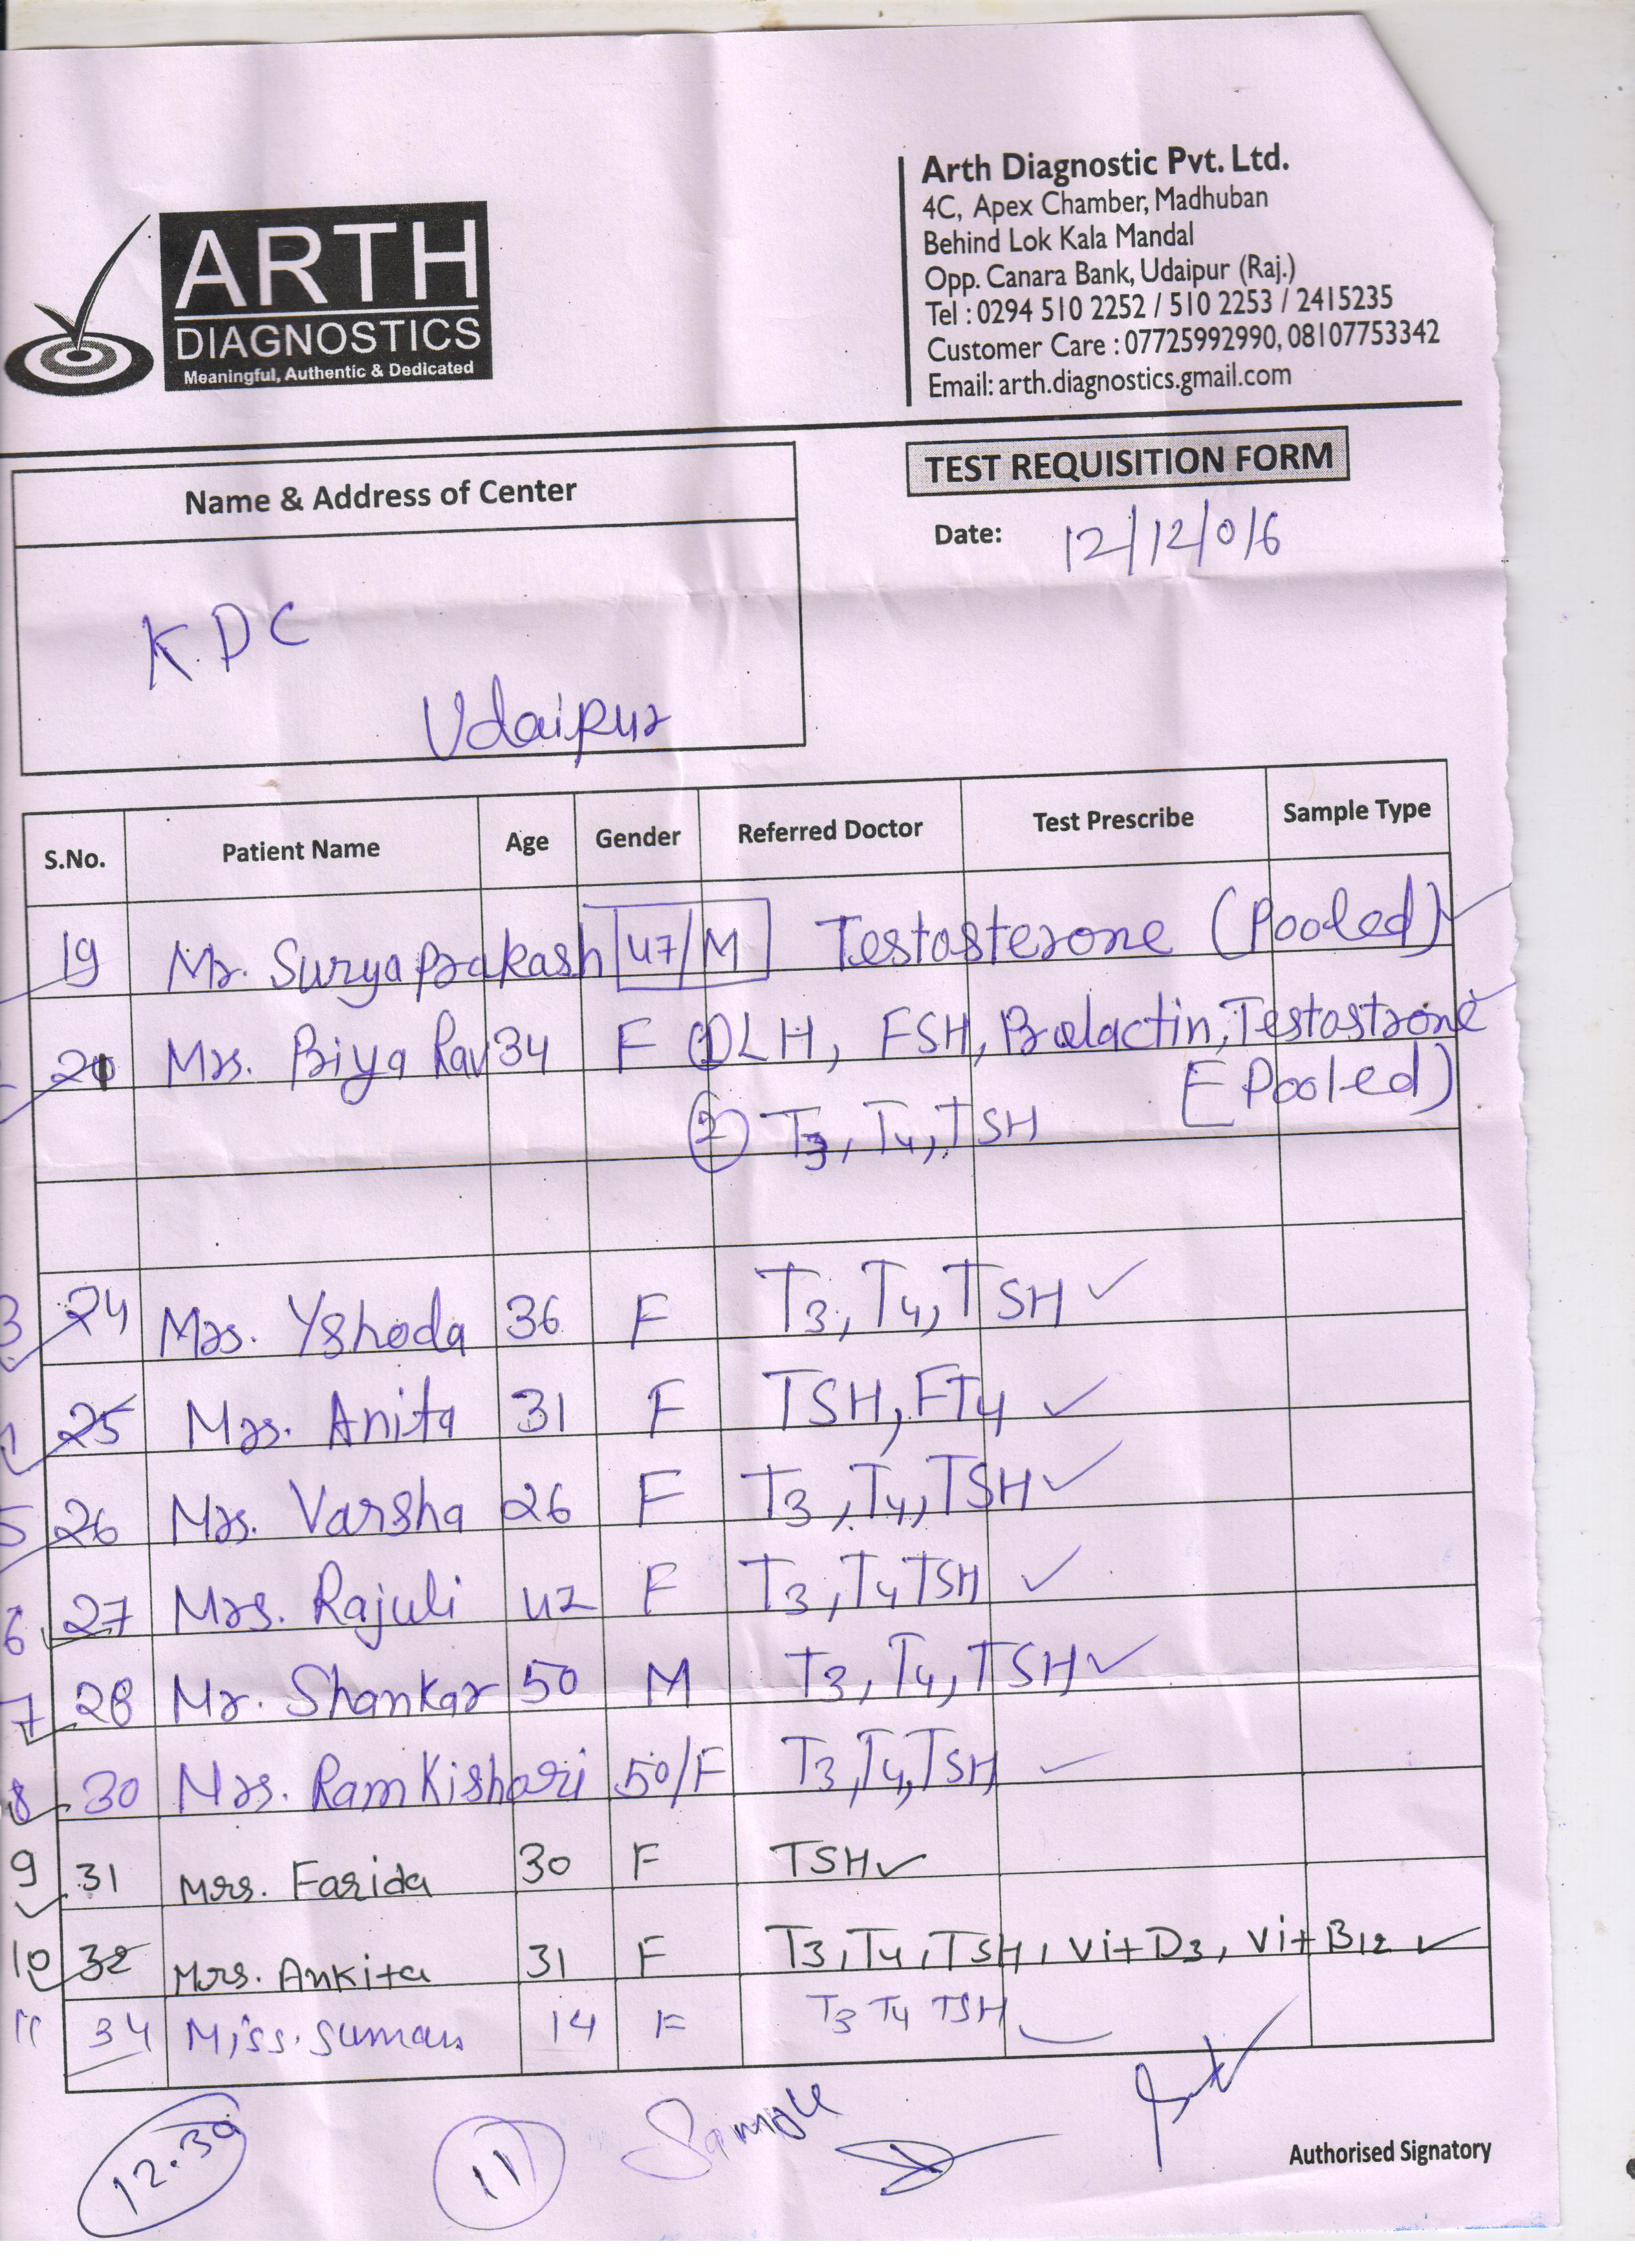 ARTH
DIAGNOSTICS
Meaningful, Authentic & Dedicated
Arth Diagnostic Pvt. Ltd.
4C, Apex Chamber, Madhuban
Behind Lok Kala Mandal
Opp. Canara Bank, Udaipur (Raj.)
Tel : 0294 510 2252 / 510 2253 / 2415235
Customer Care : 07725992990, 08107753342
Email: arth.diagnostics.gmail.com
Name & Address of Center
TEST REQUISITION FORM
Date: 12/12/016
K.DC
Udaipur
S.No. Patient Name Age Gender Referred Doctor Test Prescribe Sample Type
19 Mr. Suryaprakash 47/M Testosterone (Pooled)
Mrs. Priya Rav 34 F ① LH, FSH, Prolactin, Testostrone
[Pooled)
② T3, T4, TSH
3 24 Mrs. Yshoda 36 F T3, T4, TSH ✓
25 Mrs. Anita 31 F TSH, FT4 ✓
5 26 Mrs. Varsha 26 F T3, T4, TSH ✓
6 27 Mrs. Rajuli 42 F T3, T4 TSH ✓
7 28 Mr. Shankar 50 M T3, T4, TSH ✓
8 30 Mrs. RamKishori 50/F T3, T4, TSH ✓
9 31 Mrs. Farida 30 F TSH ✓
10 32 Mrs. Ankita 31 F T3, T4, TSH, Vit D3, Vit B12 ✓
11 34 Miss. Suman 14 F T3 T4 TSH
12.30 11 Sample
Authorised Signatory